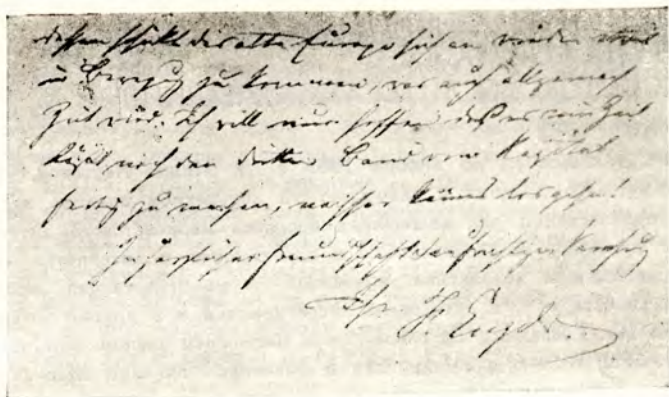 dessen schickt das alte Europa sich an wieder etwas
in Bewegung zu kommen, was auch allgemach
Zeit wird. Ich will nur hoffen daß es mir Zeit
läßt noch den dritten Band vom Kapital
fertig zu machen, nachher kann's losgehn!
In herzlicher Freundschaft &
Ihr F. Engels